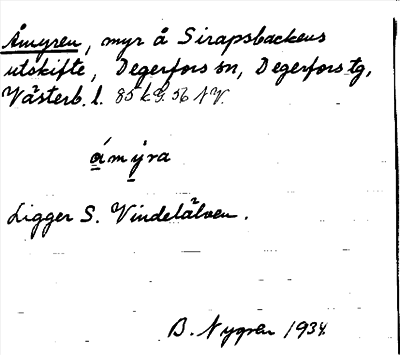 Åmyren, myr å Sirapsbackens
utskifte, Degerfors sn, Degerfors tg,
Västerb. l. 85 k.g. 56 NV.
ámýra
Ligger S. Vindelälven.
B. Nygren 1934.